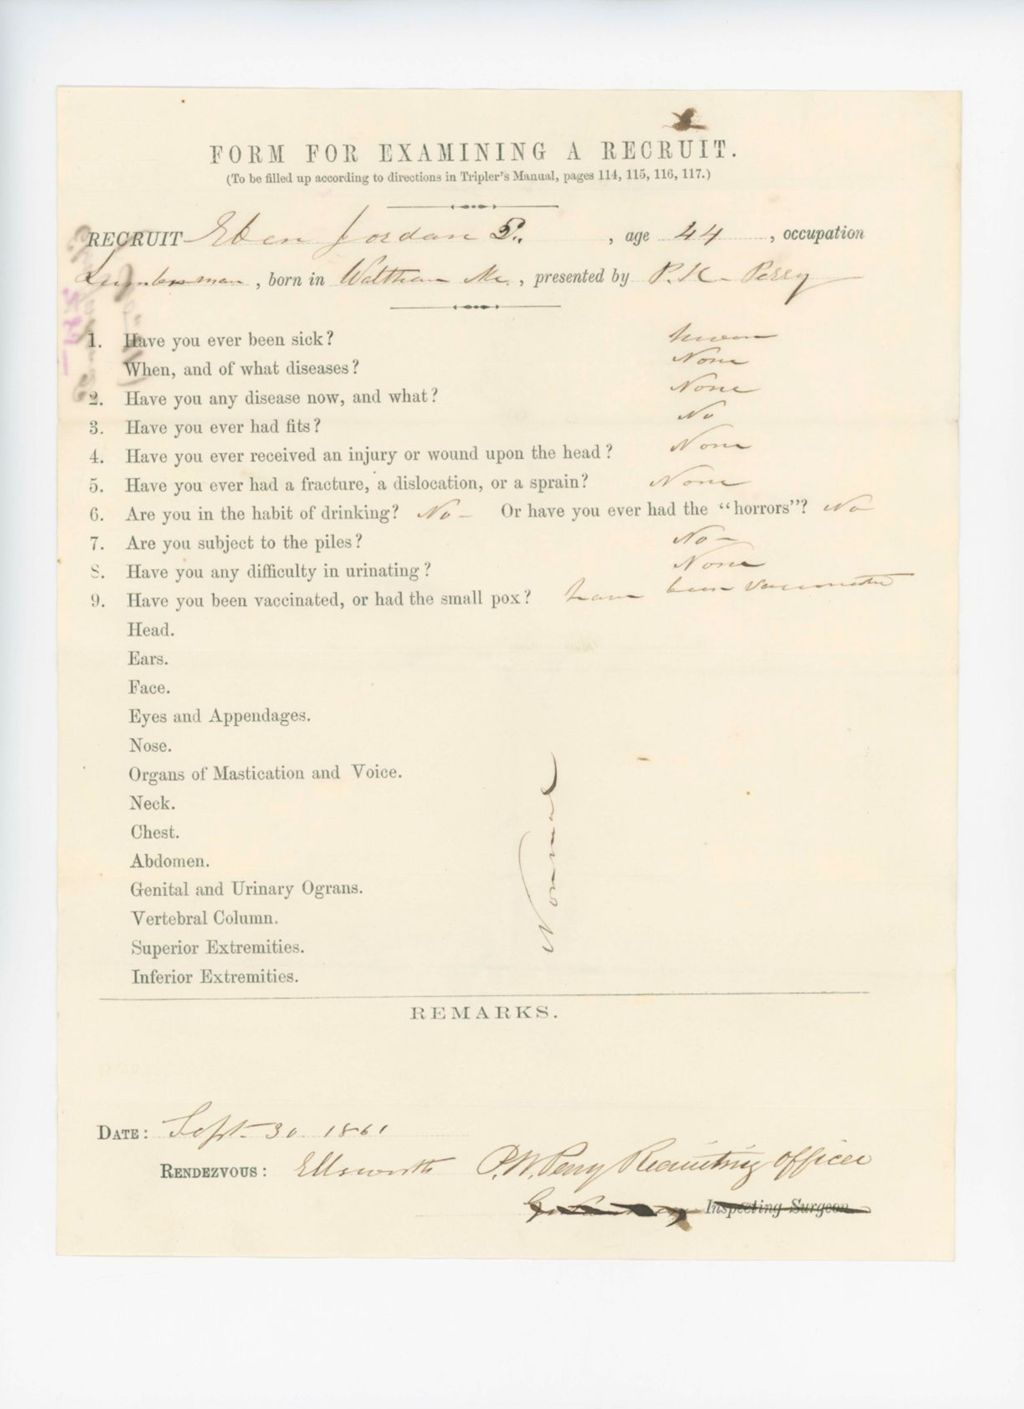 FORM FOR EXAMINING A RECRUIT.
(To be filled up according to directions in Tripler's Manual, pages 114, 115, 116, 117.)
RECRUIT Eben Jordan, age 44, occupation
Lumberman, born in Waltham Me., presented by P. Perry
1. Have you ever been sick?
When, and of what diseases? None
2. Have you any disease now, and what? None
3. Have you ever had fits? No
4. Have you ever received an injury or wound upon the head? None
5. Have you ever had a fracture, a dislocation, or a sprain? None
6. Are you in the habit of drinking? No – Or have you ever had the "horrors"? No
7. Are you subject to the piles? No –
8. Have you any difficulty in urinating? None
9. Have you been vaccinated, or had the small pox? have been vaccinated
Head.
Ears.
Face.
Eyes and Appendages.
Nose.
Organs of Mastication and Voice.
Neck.
Chest.
Abdomen.
Genital and Urinary Ograns.
Vertebral Column.
Superior Extremities.
Inferior Extremities.
Normal
REMARKS.
DATE: Sept. 30 1861
RENDEZVOUS: Ellsworth P. W. Perry Recruiting Officer
Inspecting Surgeon